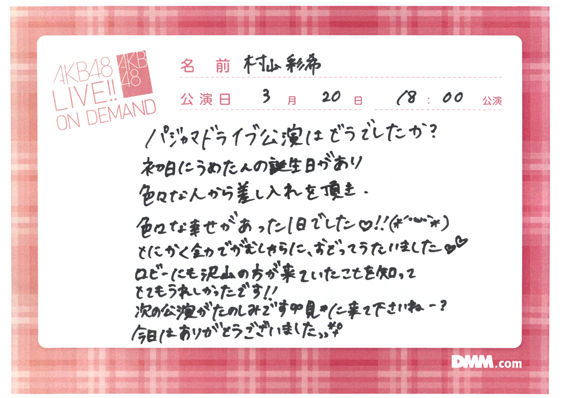 AKB48
LIVE!!
ON DEMAND
AKB
48
名 前 村山 彩希
公演日 3 月 20 日 18 : 00 公演
パジャマドライブ公演はどうでしたか?
初日にうめたんの誕生日があり
色々な人から差し入れを頂き.
色々な幸せがあった1日でした♡!!(*´ω`*)
とにかく全力でがむしゃらに、おどってうたいました♡♡
ロビーにも沢山の方が来ていたことを知って
とてもうれしかったです!!
次の公演がたのしみです 見に来て下さいねー?
今日はありがとうございました
DMM.com